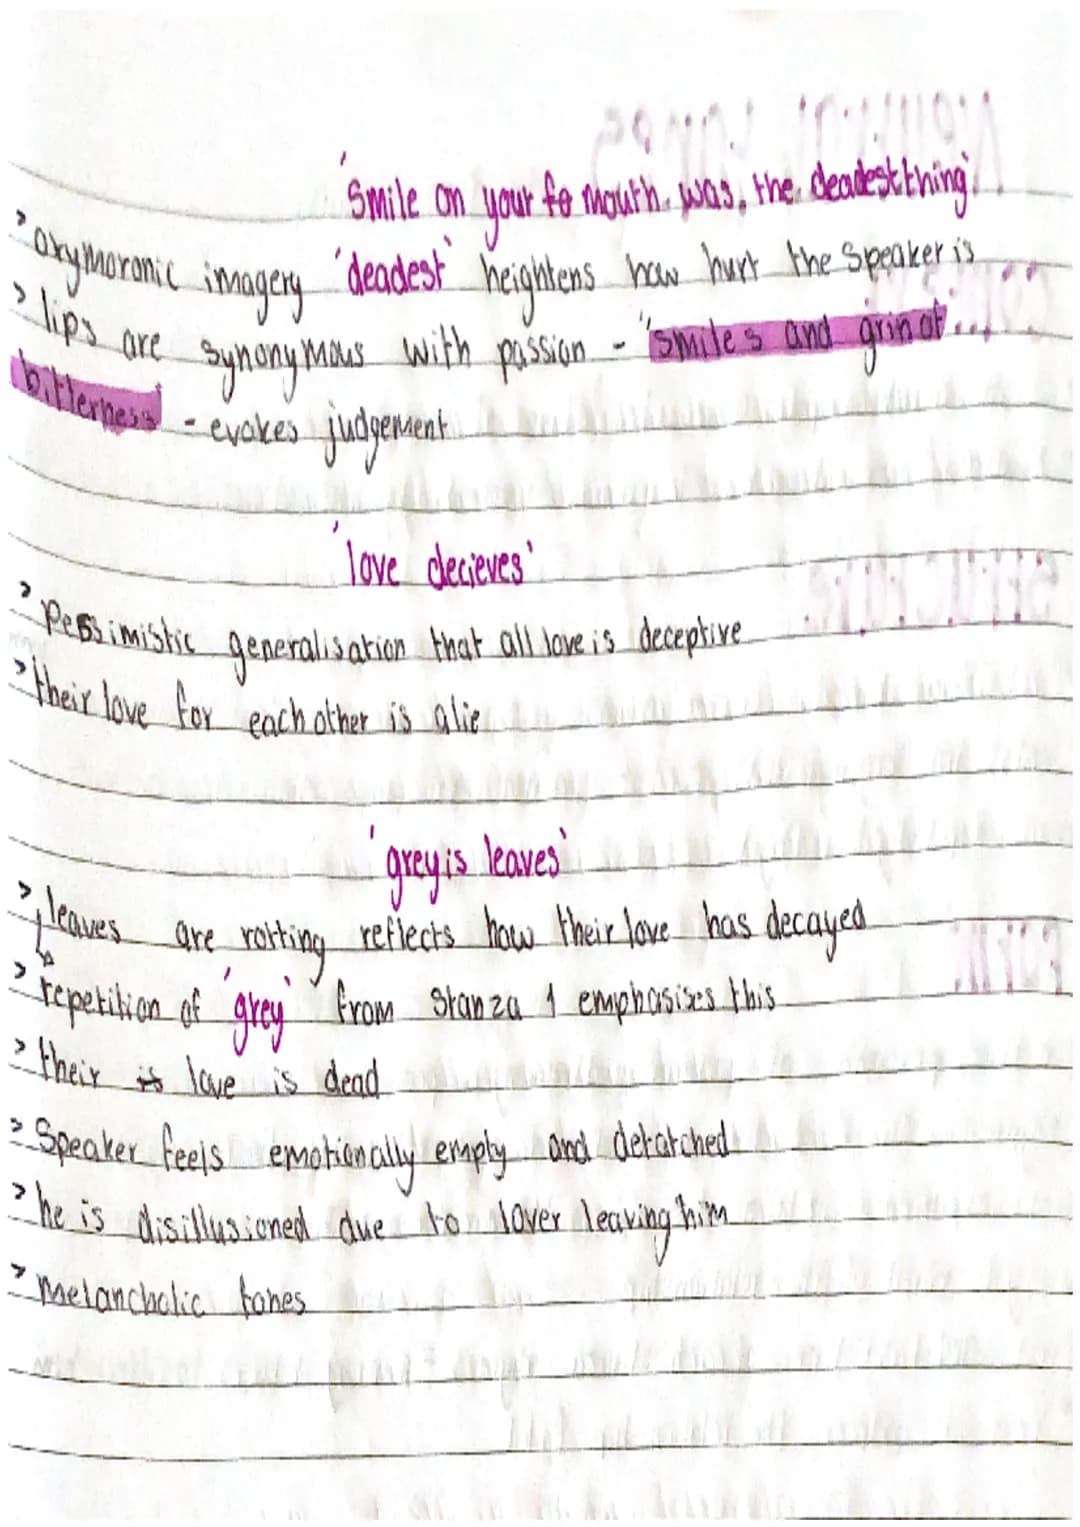 'Smile on your fo mouth was the deadest thing'
> oxymoronic imagery 'deadest' heightens how hurt the speaker is
> lips are synonymous with passion - "smiles and grin of...
bitterness" - evokes judgement
'love decieves'
> pessimistic generalisation that all love is deceptive
> their love for each other is a lie
'greyis leaves'
> leaves are rotting reflects how their love has decayed
> repetition of 'grey' from stanza 1 emphasises this
> their is love is dead
> Speaker feels emotionally empty and detatched
> he is disillusioned due to lover leaving him
> melancholic tones